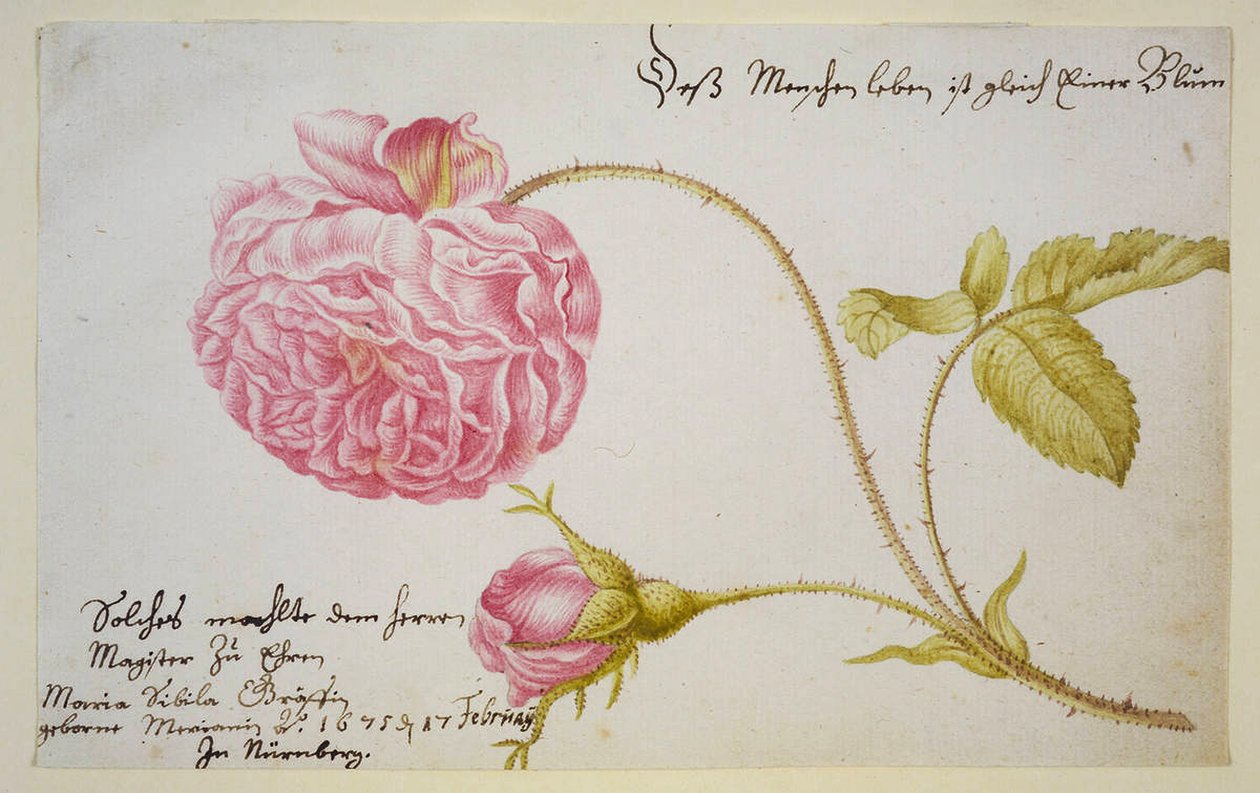 Deß Menschen leben ist gleich Einer Blum
Solches mahlte dem herren
Magister Zu Ehren
Maria Sibila Gräffin
geborne Merianin Aº. 1675 d 17 Februarÿ
In Nürnberg.